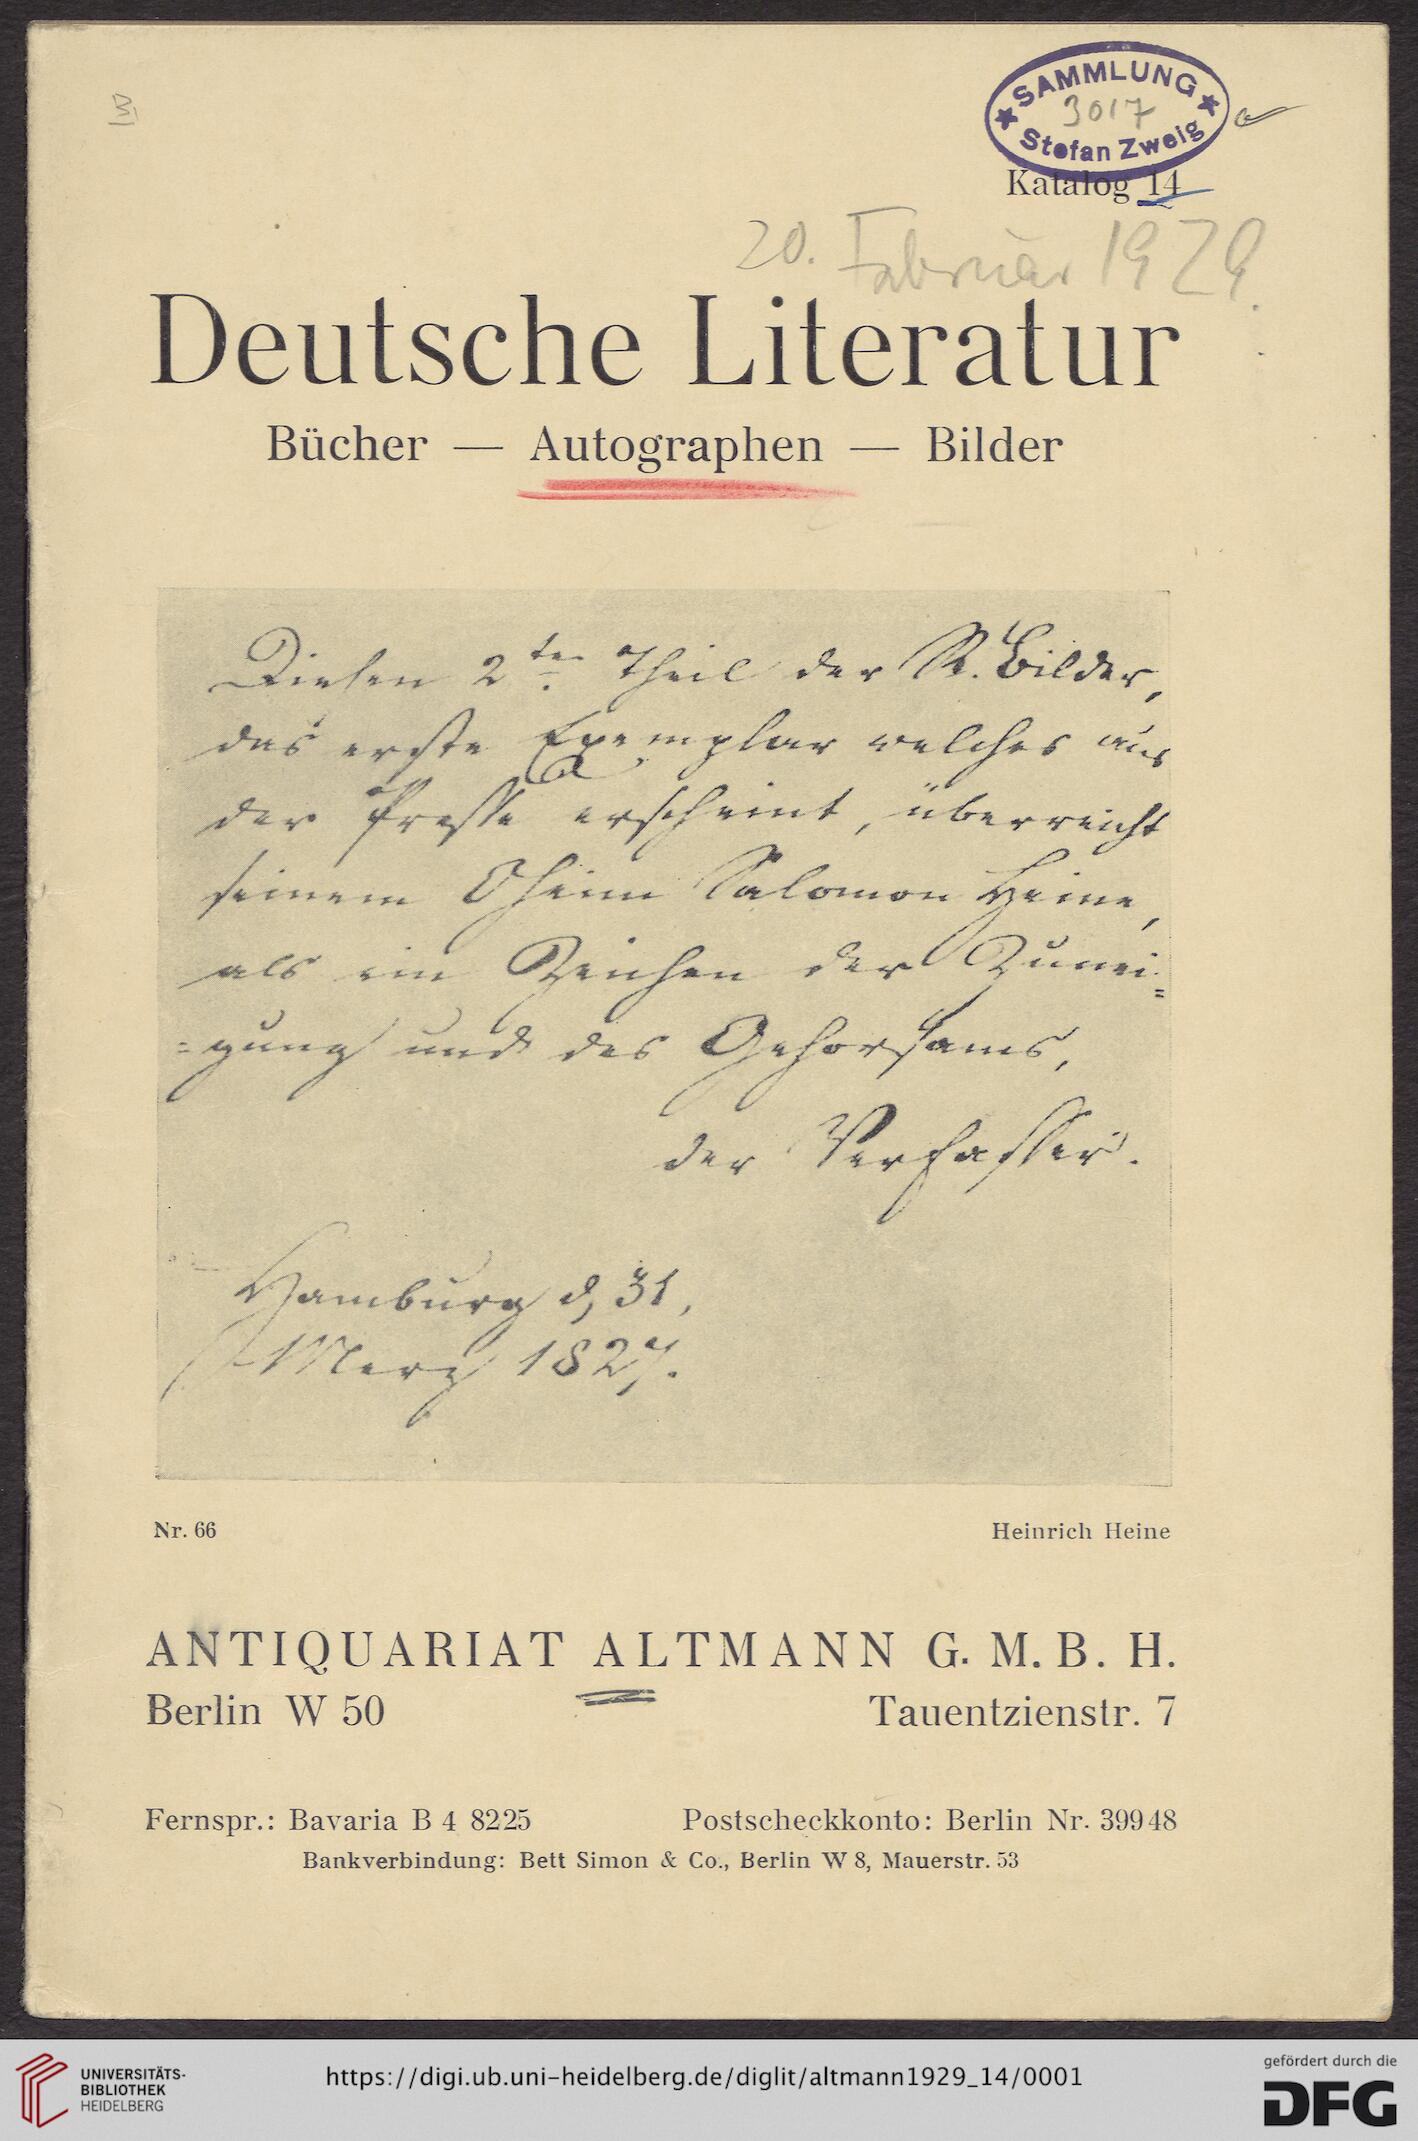 SAMMLUNG
3017
Stefan Zweig
Katalog 14
20. Februar 1929.
Deutsche Literatur
Bücher — Autographen — Bilder
Diesen 2ten Theil der R. Bilder,
das erste Exemplar welches aus
der Presse erscheint, überreicht
seinem Oheim Salomon Heine,
als ein Zeichen der Zunei-
=gung und des Gehorsams,
der Verfasser.
Hamburg d, 31,
Merz 1827.
Nr. 66
Heinrich Heine
ANTIQUARIAT ALTMANN G. M. B. H.
Berlin W 50
Tauentzienstr. 7
Fernspr.: Bavaria B 4 8225
Postscheckkonto: Berlin Nr. 39948
Bankverbindung: Bett Simon & Co., Berlin W 8, Mauerstr. 53
UNIVERSITÄTS-
BIBLIOTHEK
HEIDELBERG
https://digi.ub.uni-heidelberg.de/diglit/altmann1929_14/0001
gefördert durch die
DFG